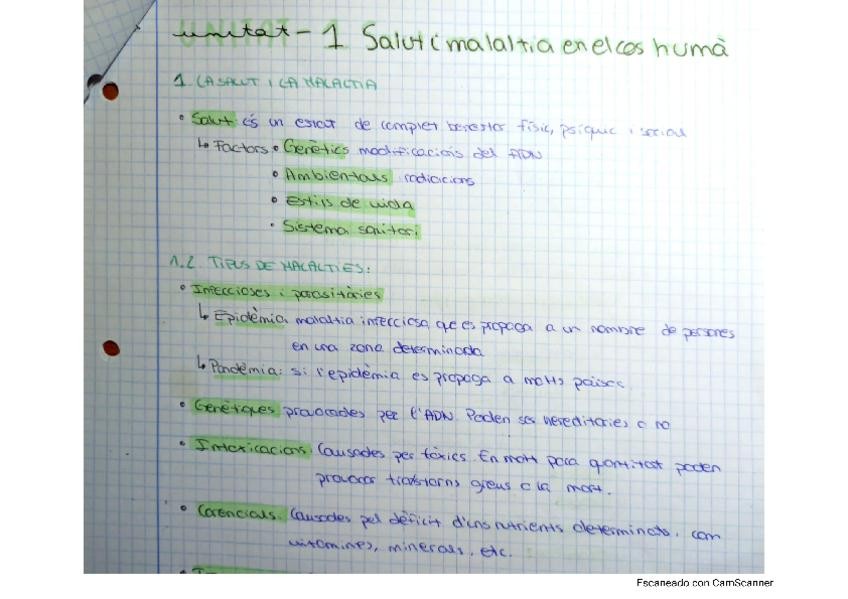 unitat - 1 Salut i malaltia en el cos humà
1. LA SALUT I LA MALALTIA
• Salut és un estat de complet benestar físic, psíquic i social
↳ Factors • Genètics modificacions del ADN
• Ambientals radiacions
• Estils de vida
• Sistema sanitari
1.2. TIPUS DE MALALTIES:
• Infeccioses i parasitàries
↳ Epidèmia malaltia infecciosa que es propaga a un nombre de persones
en una zona determinada
↳ Pandèmia: si l'epidèmia es propaga a molts països.
• Genètiques provocades per l'ADN. Poden ser hereditaries o no
• Intoxicacions: Causades per tòxics. En molt poca quantitat poden
provocar trastorns greus o la mort.
• Carencials. Causades pel dèficit d'uns nutrients determinats, com
vitamines, minerals, etc.
Escaneado con CamScanner